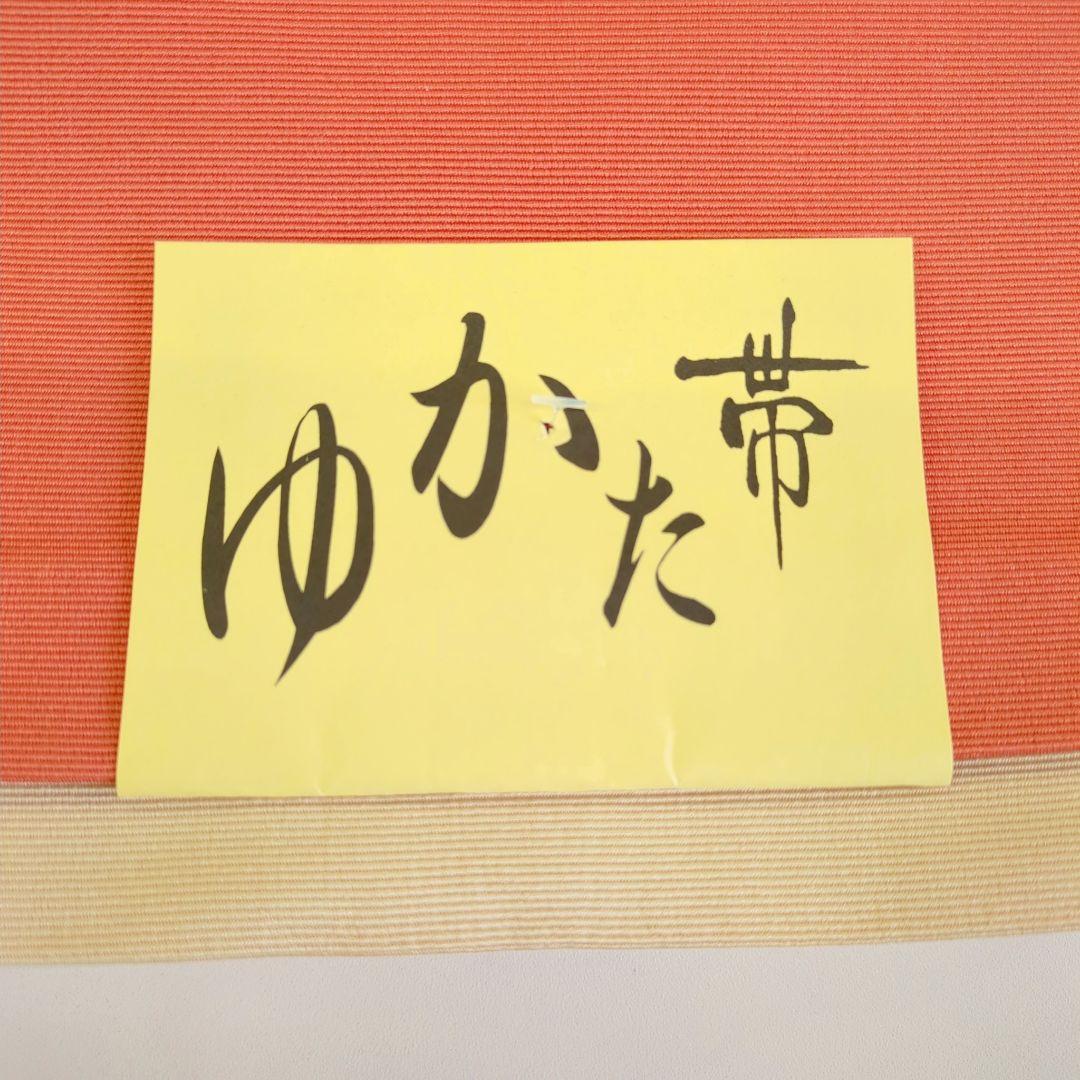 ゆかた帯